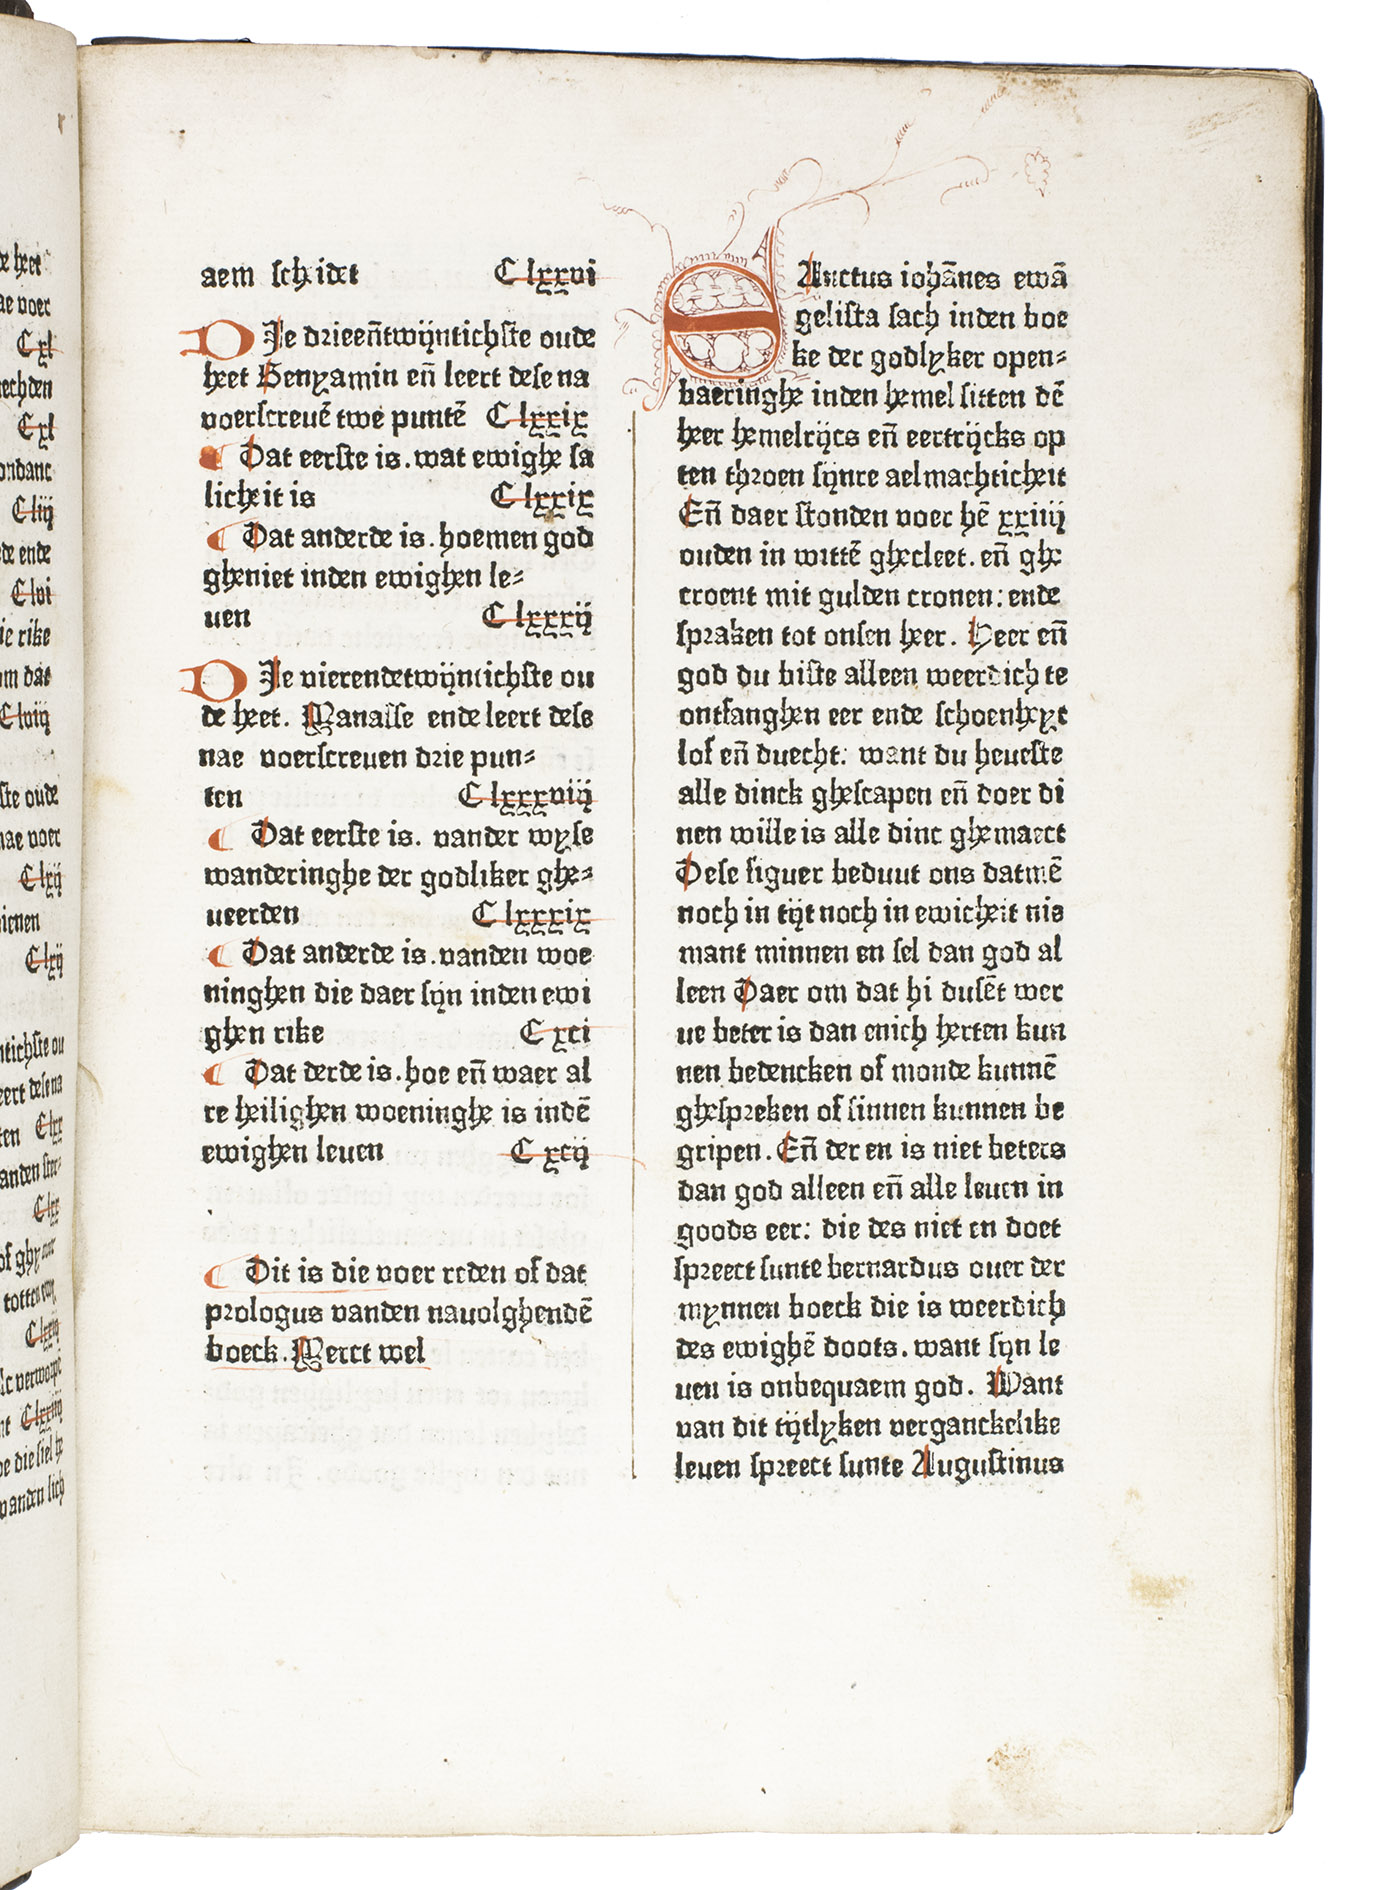 de heet
ae voer
C xl
echden
C xl
ondanc
C liij
de ende
C lvi
ie rike
om dat
C lviij
ste oude
nae voer
C lxij
ienen
C lxij
ntichste ou
eert dese na
ten C lxx
anden ster-
C lxx
C lxxij
C lxxiiij
vanden lich
aem scheidet C lxxvi
DIe drieen̄twijntichste oude
heet Benyamin en̄ leert dese na
voerscreuē twe puntē C lxxix
¶ Dat eerste is. wat ewighe sa
licheit is C lxxix
¶ Dat anderde is. hoemen god
gheniet inden ewighen le-
uen C lxxxij
DIe vierendetwijntichste ou
de heet. Manasse ende leert dese
nae voerscreuen drie pun-
ten C lxxxviij
¶ Dat eerste is. vander wyse
wanderinghe der godliker ghe-
ueerden C lxxxix
¶ Dat anderde is. vanden woe
ninghen die daer sijn inden ewi
ghen rike C xci
¶ Dat derde is. hoe en̄ waer al
re heilighen woeninghe is indē
ewighen leuen C xcij
¶ Dit is die voer reden of dat
prologus vanden navolghendē
boeck. Merct wel
SAnctus iohānes ewā
gelista sach inden boe
ke der godlyker open-
baeringhe inden hemel sitten dē
heer hemelrijcs en̄ eertrijcks op
ten throen sijnre aelmachticheit
En̄ daer stonden voer hē xxiiij
ouden in wittē ghecleet. en̄ ghe
croent mit gulden cronen: ende
spraken tot onsen heer. Heer en̄
god du biste alleen weerdich te
ontfanghen eer ende schoenheyt
lof en̄ duecht: want du heueste
alle dinck ghescapen en̄ doer di
nen wille is alle dinc ghemaect
Dese figuer beduut ons datmē
noch in tijt noch in ewicheit nie
mant minnen en sel dan god al
leen Daer om dat hi dusēt wer
ue beter is dan enich herten kun
nen bedencken of monde kunnē
ghespreken of sinnen kunnen be
gripen. En̄ der en is niet beters
dan god alleen en̄ alle leuen in
goods eer: die des niet en doet
spreect sunte bernardus ouer der
mynnen boeck die is weerdich
des ewighē doots. want sijn le
uen is onbequaem god. Want
van dit tijtlyken verganckelike
leuen spreect sunte Augustinus